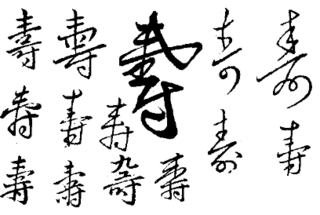 壽 壽 壽 壽 壽
壽 壽 壽 壽 壽
壽 壽 九壽 壽